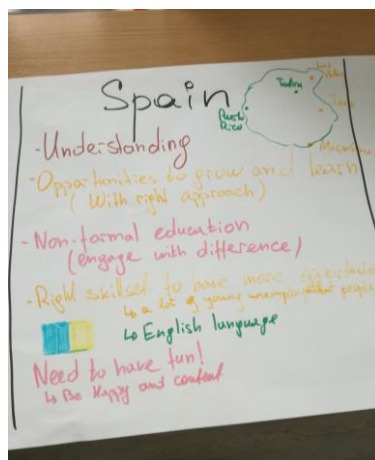 Spain
Puerto
Rico
-Understanding
-Opportunities to grow and learn
(With right approach)
- Non-formal education
(engage with difference)
-Right skillset to have more
↳ a lot of young people
↳ English language
Need to have fun!
↳ Be Happy and content